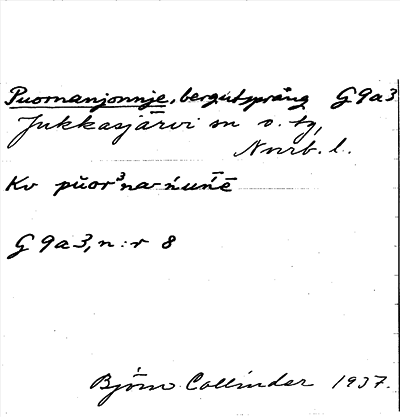 Puornanjonnje, bergutsprång G9a3
Jukkasjärvi sn o. tg,
Nnrb. l.
Kv pŭor³na-ńuńē
G9a3, n:r 8
Björn Collinder 1937.